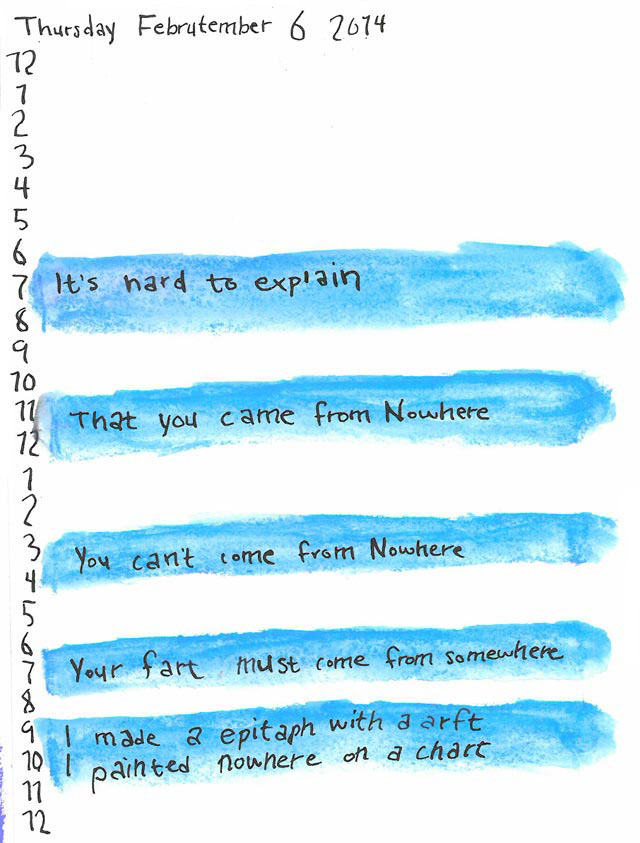 Thursday Februtember 6 2014
12
1
2
3
4
5
6
7 It's hard to explain
8
9
10
11 That you came from Nowhere
12
1
2
3 You can't come from Nowhere
4
5
6
7 Your fart must come from somewhere
8
9 I made a epitaph with a arft
10 I painted nowhere on a chart
11
12